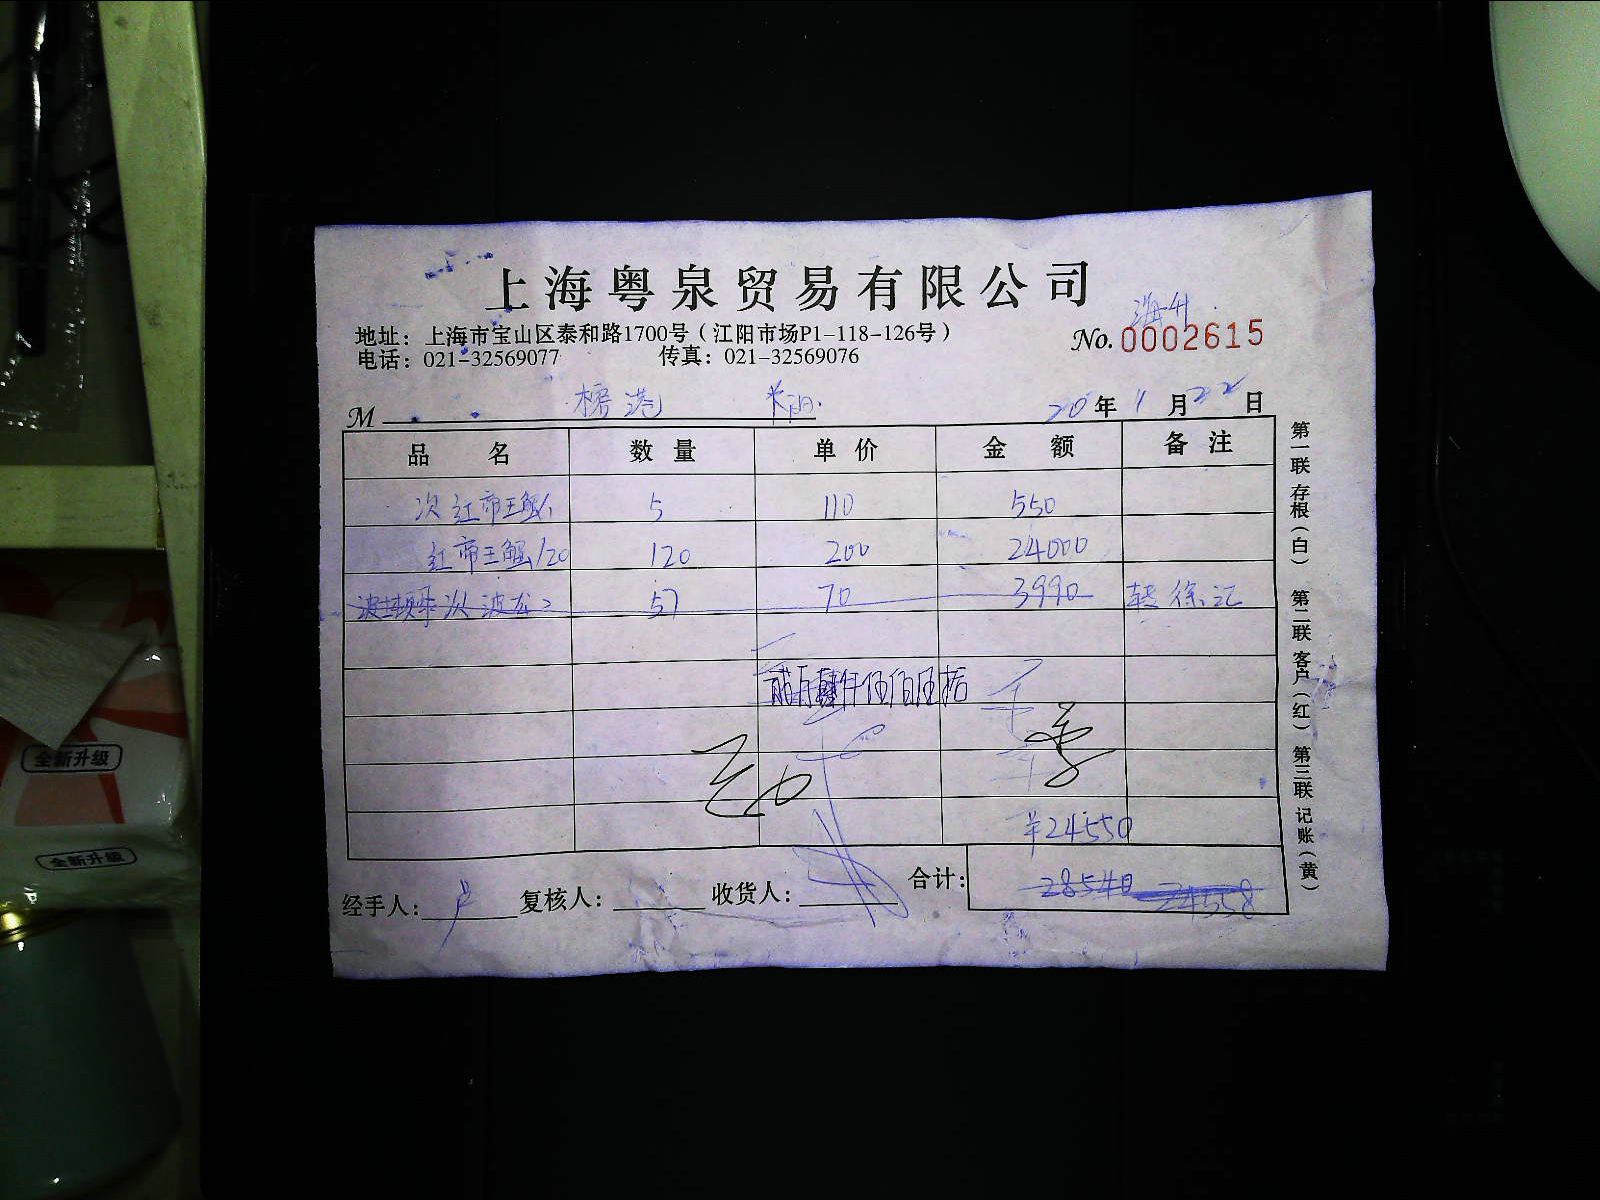 上海粤泉贸易有限公司
地址：上海市宝山区泰和路1700号（江阳市场P1-118-126号）
海升
No. 0002615
电话：021-32569077 传真：021-32569076
M 榜港 20年11月22日
品名 数量 单价 金额 备注
次红帝王蟹1 5 110 550
红帝王蟹/20 120 200 24000
次波龙2 57 70 3990 转徐汇
贰万肆仟伍佰伍拾
¥24550
经手人： 复核人： 收货人： 合计： 28540 24558
第一联 存根（白） 第二联 客户（红） 第三联 记账（黄）
全新升级
全新升级